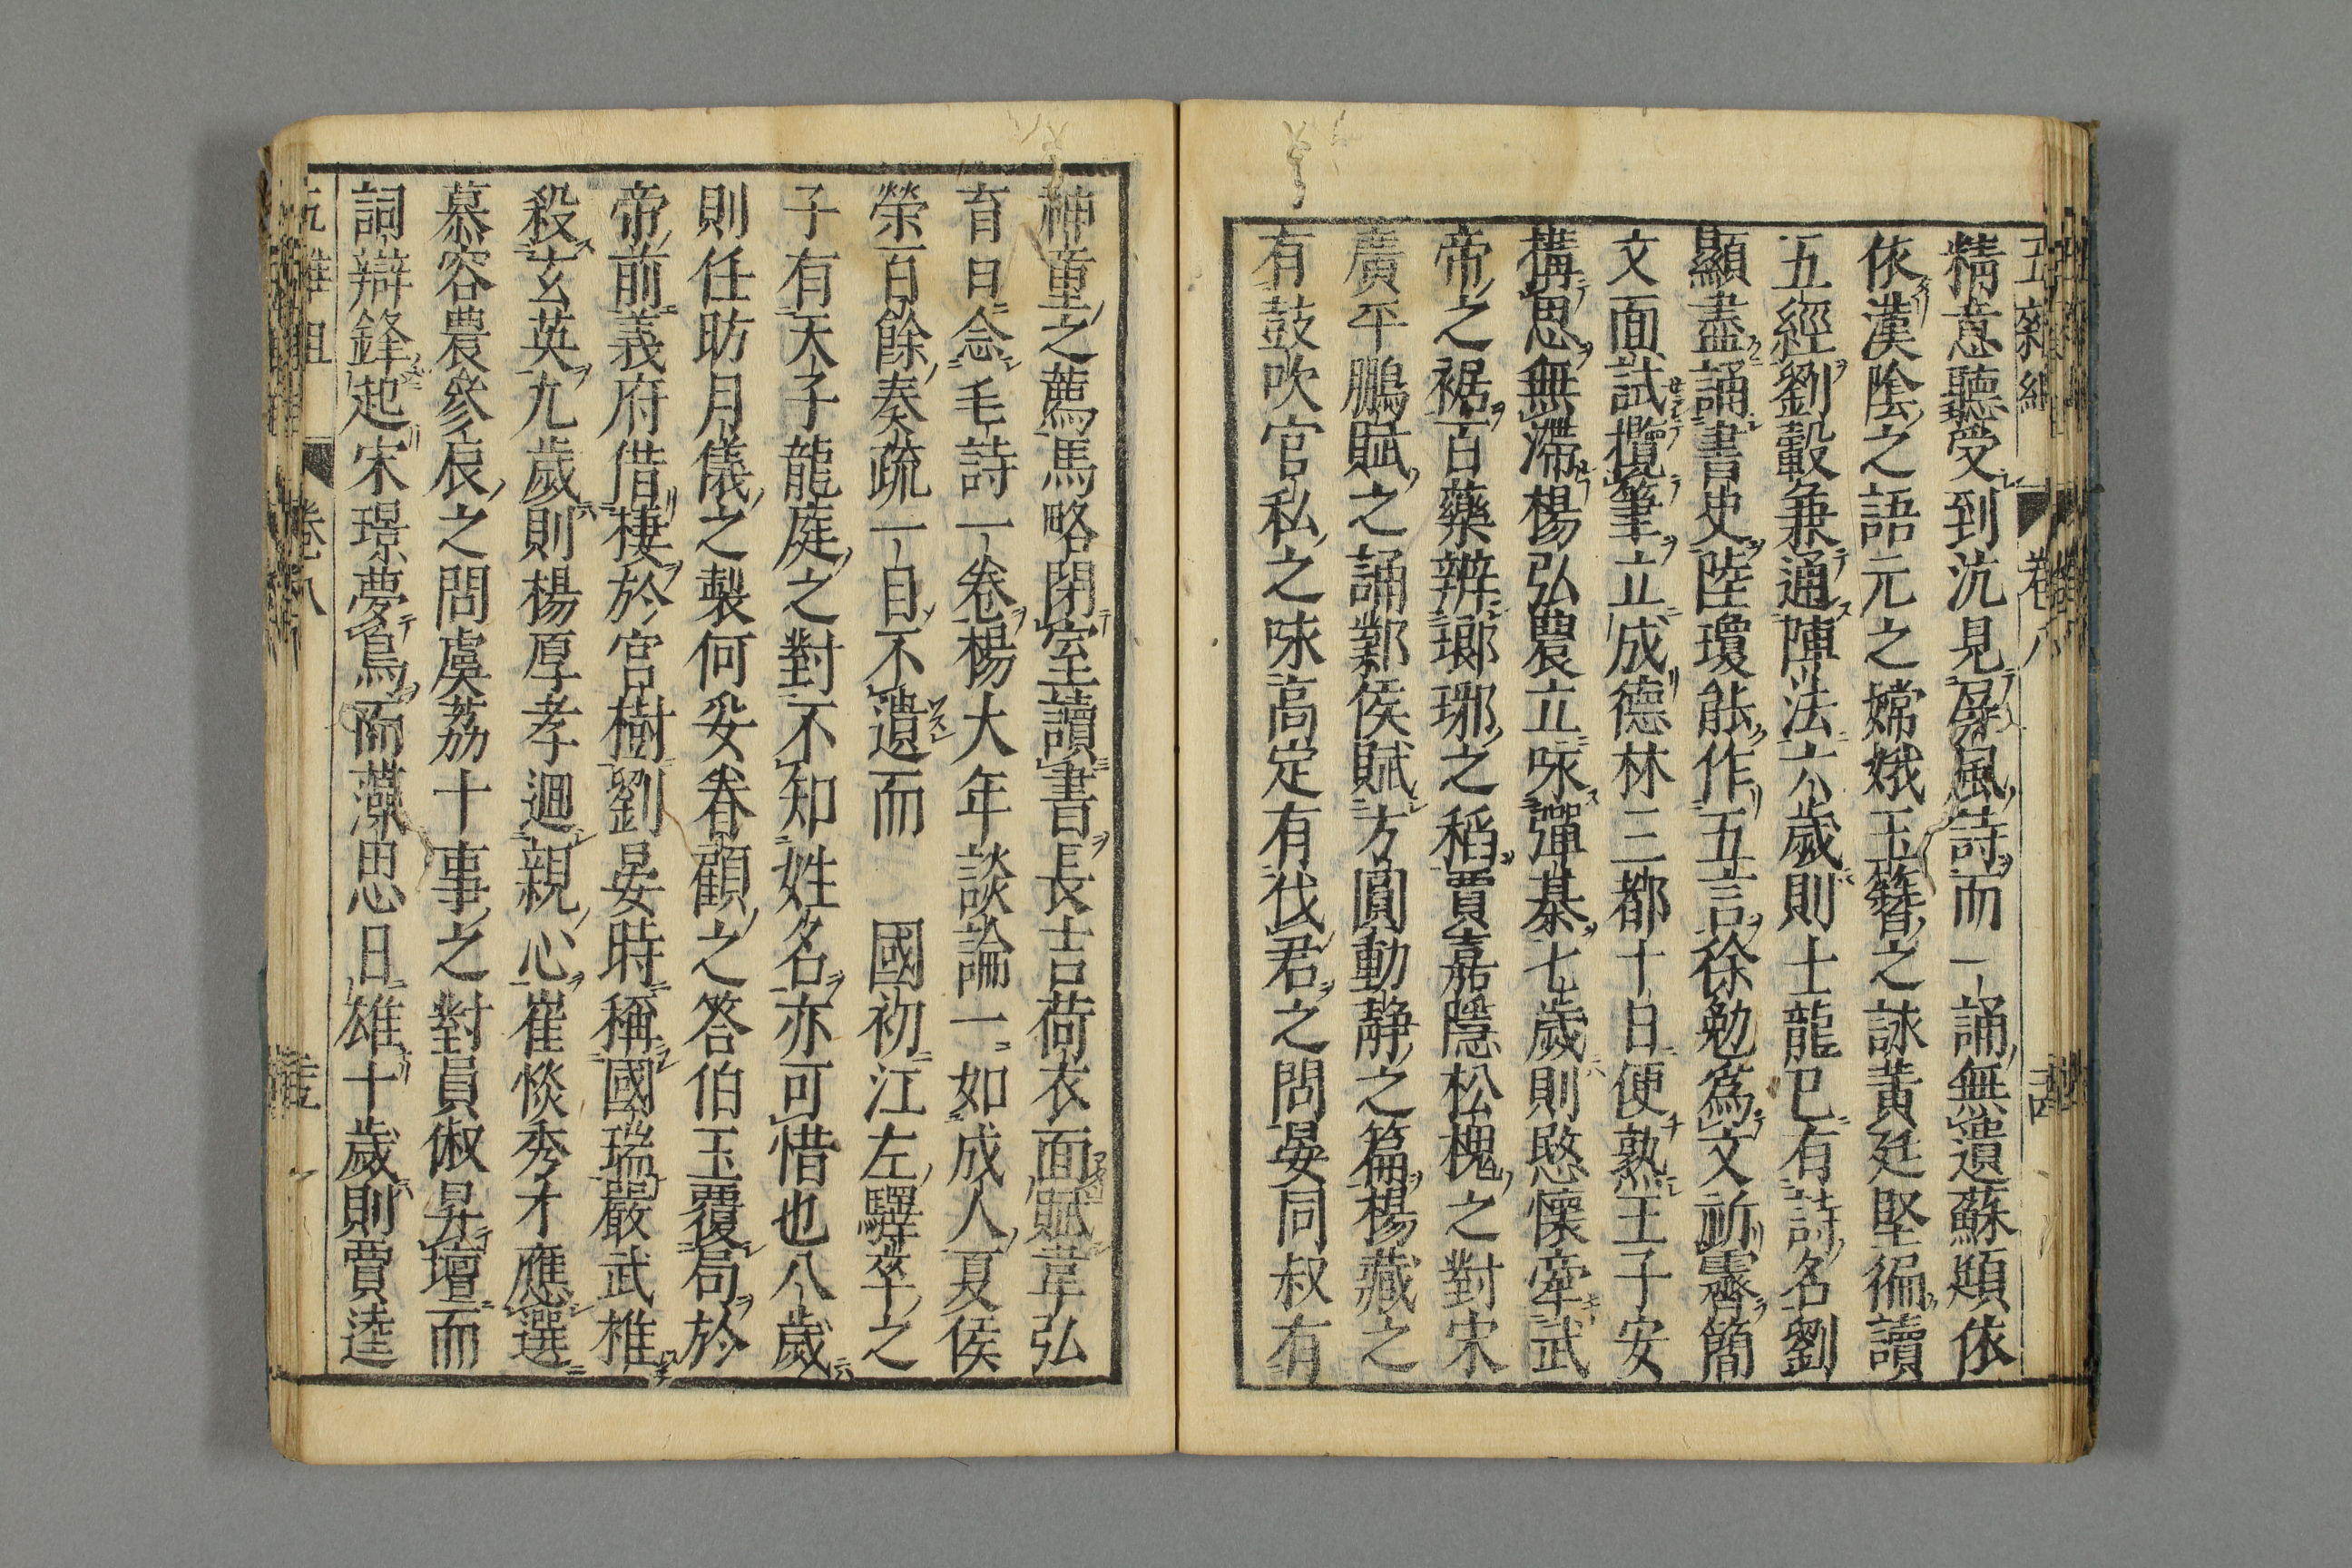 精意聽受到沆見屏風詩而一誦無遺蘇頲依
依漢陰之語元之嫦娥玉簪之詠黃廷堅徧讀
五經劉轂兼通陣法六歲則士龍已有詩名劉
顯盡誦書史陸瓊能作五言徐勉爲文祈霽簡
文面試攬筆立成德林三都十日便熟王子安
搆思無滯楊弘農立咏彈棊七歲則愍懷牽武
帝之裾百藥辨瑯琊之稻賈嘉隱松槐之對宋
廣平鵬賦之誦鄴侯賦方圓動靜之篇楊藏之
有鼓吹官私之味高定有伐君之問晏同叔有
神童之薦馬略閉室讀書長吉荷衣面賦韋弘
育日念毛詩一卷楊大年談論一如成人夏侯
榮百餘奏疏一目不遺而 國初江左驛卒之
子有天子龍庭之對不知姓名亦可惜也八歲
則任昉月儀之製何妥眷顧之答伯玉覆局於
帝前義府借棲於官樹劉晏時稱國瑞嚴武椎
殺玄英九歲則楊厚孝迴親心崔惔秀才應選
慕容農參辰之問虞荔十事之對員俶昇壇而
詞辯鋒起宋璟夢鳥而藻思日雄十歲則賈逵
卷八